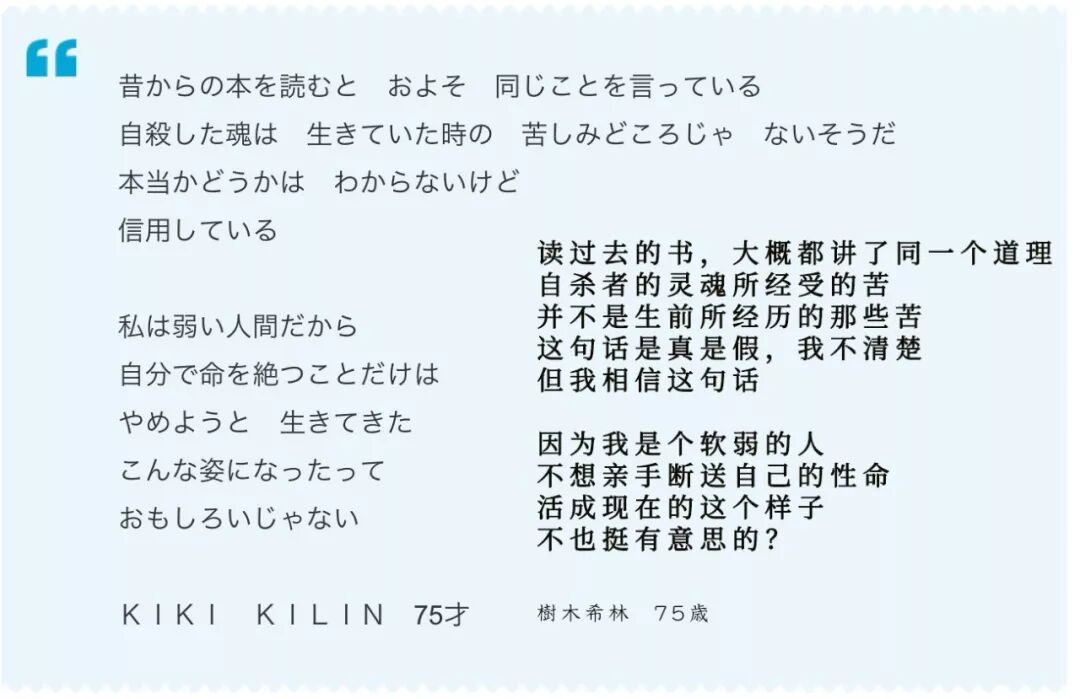 昔からの本を読むと　およそ　同じことを言っている
自殺した魂は　生きていた時の　苦しみどころじゃ　ないそうだ
本当かどうかは　わからないけど
信用している
私は弱い人間だから
自分で命を絶つことだけは
やめようと　生きてきた
こんな姿になったって
おもしろいじゃない
ＫＩＫＩ　ＫＩＬＩＮ　75才
读过去的书，大概都讲了同一个道理
自杀者的灵魂所经受的苦
并不是生前所经历的那些苦
这句话是真是假，我不清楚
但我相信这句话
因为我是个软弱的人
不想亲手断送自己的性命
活成现在的这个样子
不也挺有意思的？
樹木希林　75歳